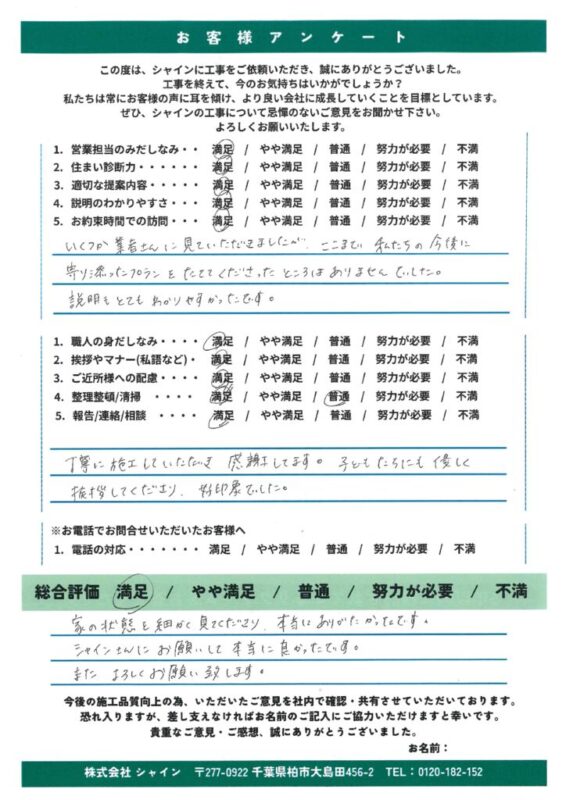 お客様アンケート
この度は、シャインに工事をご依頼いただき、誠にありがとうございました。
工事を終えて、今のお気持ちはいかがでしょうか？
私たちは常にお客様の声に耳を傾け、より良い会社に成長していくことを目標としています。
ぜひ、シャインの工事について忌憚のないご意見をお聞かせ下さい。
よろしくお願いいたします。
1. 営業担当のみだしなみ・・ 満足 / やや満足 / 普通 / 努力が必要 / 不満
2. 住まい診断力・・・・・・ 満足 / やや満足 / 普通 / 努力が必要 / 不満
3. 適切な提案内容・・・・・ 満足 / やや満足 / 普通 / 努力が必要 / 不満
4. 説明のわかりやすさ・・・ 満足 / やや満足 / 普通 / 努力が必要 / 不満
5. お約束時間での訪問・・・ 満足 / やや満足 / 普通 / 努力が必要 / 不満
いくつか業者さんに見ていただきましたが、ここまで私たちの今後に
寄り添ったプランをたててくださったところはありませんでした。
説明もとてもわかりやすかったです。
1. 職人の身だしなみ・・・・ 満足 / やや満足 / 普通 / 努力が必要 / 不満
2. 挨拶やマナー(私語など)・ 満足 / やや満足 / 普通 / 努力が必要 / 不満
3. ご近所様への配慮・・・・ 満足 / やや満足 / 普通 / 努力が必要 / 不満
4. 整理整頓/清掃 ・・・・ 満足 / やや満足 / 普通 / 努力が必要 / 不満
5. 報告/連絡/相談 ・・・・ 満足 / やや満足 / 普通 / 努力が必要 / 不満
丁寧に施工していただき 感謝してます。子どもたちにも優しく
挨拶してくださり、好印象でした。
※お電話でお問合せいただいたお客様へ
1. 電話の対応・・・・・・・ 満足 / やや満足 / 普通 / 努力が必要 / 不満
総合評価 満足 / やや満足 / 普通 / 努力が必要 / 不満
家の状態を細かく見てくださり、本当にありがたかったです。
シャインさんにお願いして本当に良かったです。
また よろしくお願い致します。
今後の施工品質向上の為、いただいたご意見を社内で確認・共有させていただいております。
恐れ入りますが、差し支えなければお名前のご記入にご協力いただけますと幸いです。
貴重なご意見・ご感想、誠にありがとうございました。
お名前：
株式会社 シャイン 〒277-0922 千葉県柏市大島田456-2 TEL：0120-182-152